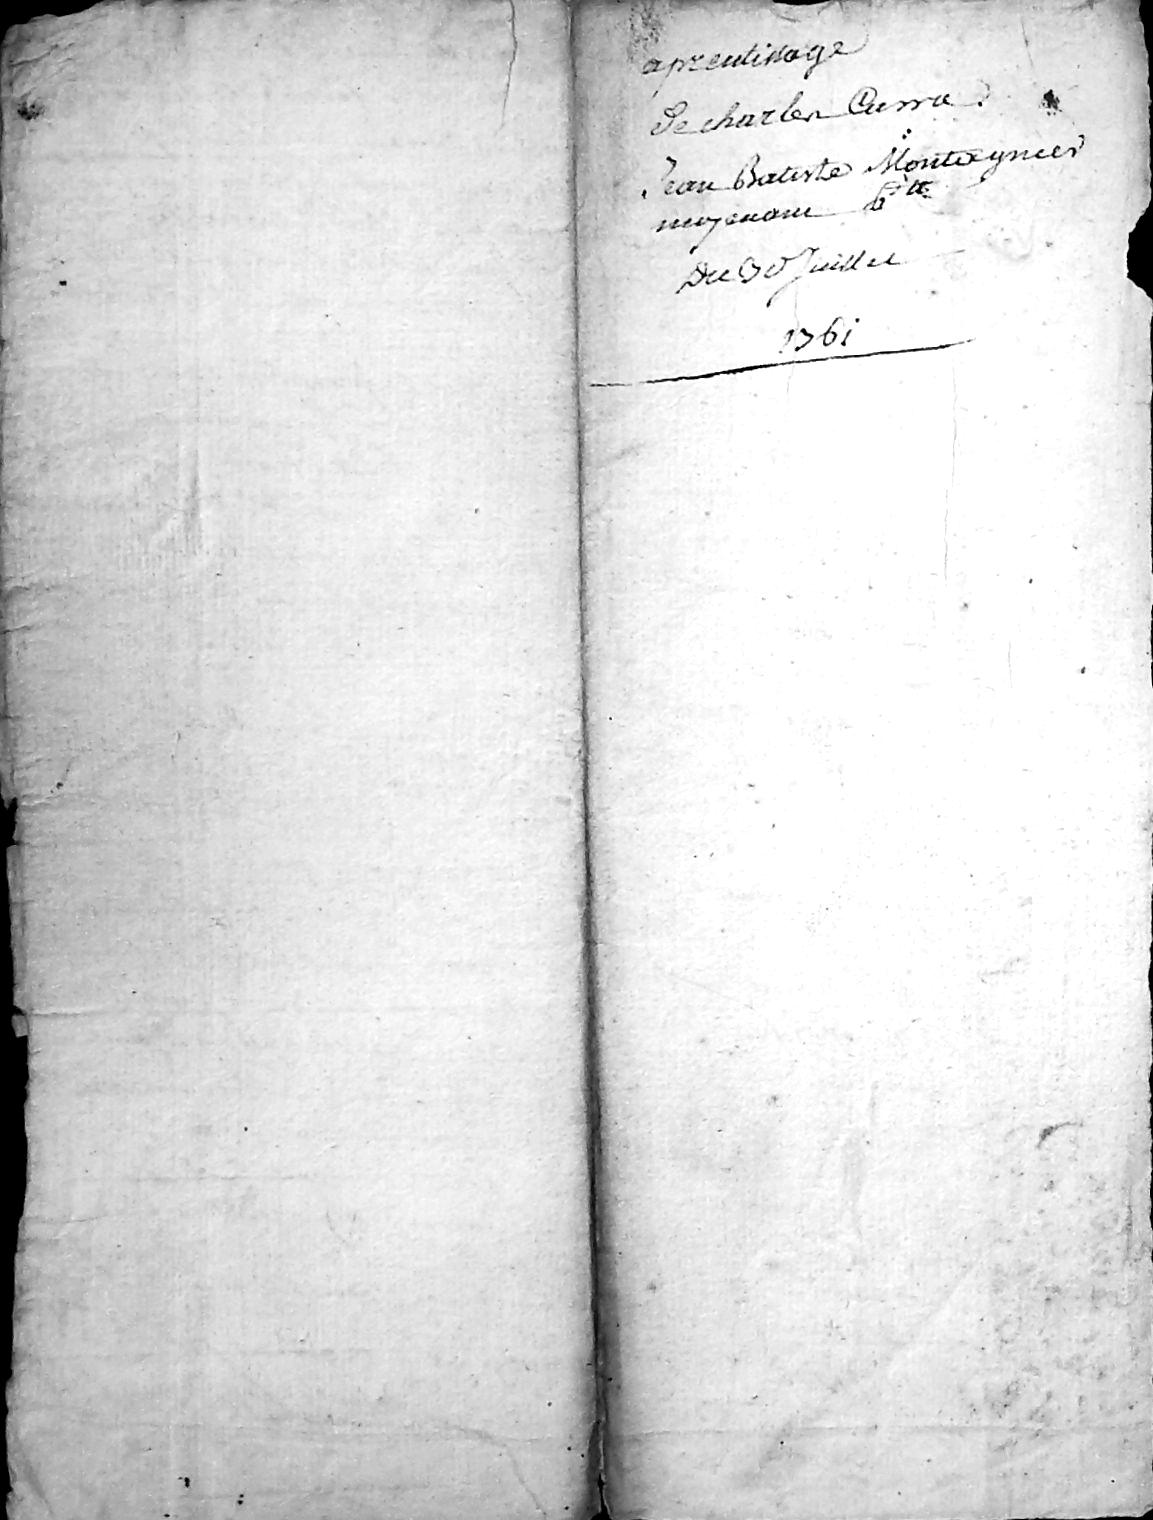 aprentissage
De charles Curra
Jean Batiste Montagnier
moyenant 6 ₶
Du 30 Juillet
1761